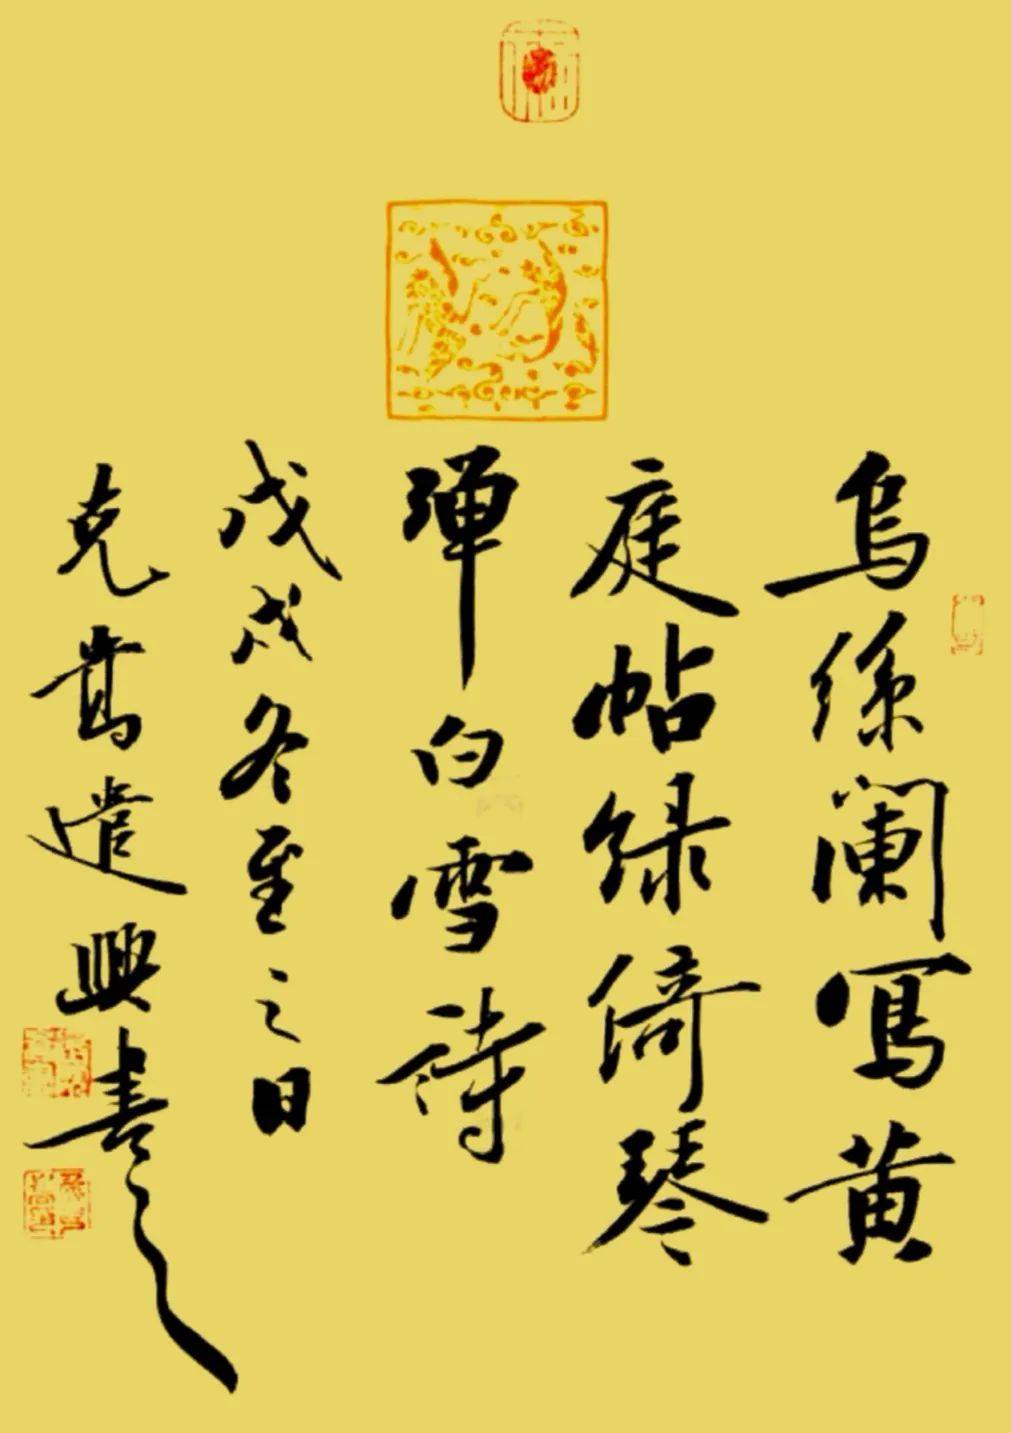 烏絲闌寫黄
庭帖緑綺琴
彈白雪詩
戊戌冬至之日
克遣興書之